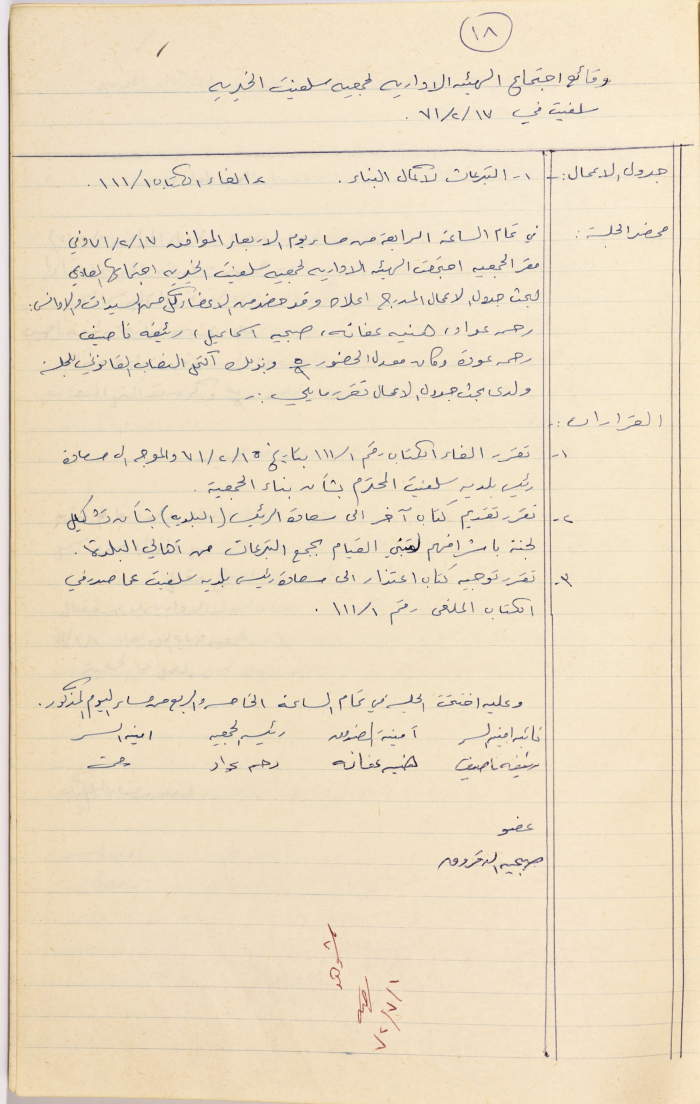 ١٨
وقائع اجتماع الهيئه الاداريه لجمعيه سلفيت الخيريه
سلفيت في ٧١/٢/١٧ .
جدول الاعمال :- ١- التبرعات لاكمال البناء . ٢- الغاء الكتاب ١١١/١ .
محضر الجلسة : في تمام الساعة الرابعة من مساء يوم الاربعاء الموافق ٧١/٢/١٧ وفي
مقر الجمعيه اجتمعت الهيئه الاداريه لجمعيه سلفيت الخيريه اجتماعها العادي
لبحث جدول الاعمال المدرج اعلاه وقد حضر من الاعضاء كل من السيدات والاوانس :
رحمه عواد ، هنيه عفانه ، صبحيه اسماعيل ، رئيفه ناصيف
رحمه عودة وكان معدل الحضور وبذلك اكتمل النصاب القانوني للجلسة
ولدى بحث جدول الاعمال تقرر ما يلي :-
القرارات :-
١- تقرر الغاء الكتاب رقم ١١١/١ بتاريخ ٧١/٢/١٥ والموجه الى سعادة
رئيس بلديه سلفيت المحترم بشأن بناء الجمعية .
٢- تقرر تقديم كتاب آخر الى سعادة الرئيس (البلديه) بشأن تشكيل
لجنة باشرافهم القيام بجمع التبرعات من أهالي البلدة .
٣- تقرر توجيه كتاب اعتذار الى سعادة رئيس بلديه سلفيت عما صدر في
الكتاب الملغى رقم ١١١/١ .
وعليه اختتمت الجلسه في تمام الساعة الخامسه والربع من مساء اليوم المذكور .
نائبه امينه السر امينة الصندوق رئيسه الجمعيه امينه السر
رئيفه ناصيف هنيه عفانه رحمه عواد رحمه
عضو
صبحيه
شوهد
٧٢/٧/١